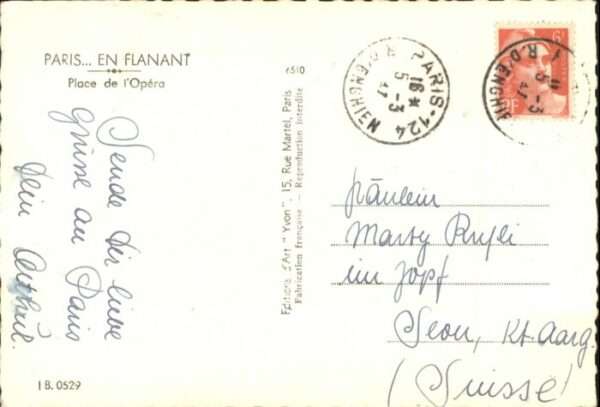 PARIS... EN FLANANT
Place de l'Opéra
Sende Dir liebe
grüsse au Paris
Dein
I B. 0529
6510
Editions d'Art "Yvon", 15, Rue Martel, Paris
Fabrication Française - Reproduction Interdite
PARIS·124
16*
5-3
47
R. D'ENGHIEN
R. D'ENGHIEN
5-3
47
RF
Fräulein
Marty
im Zopf
Seon, Kt. Aarg.
(Suisse)